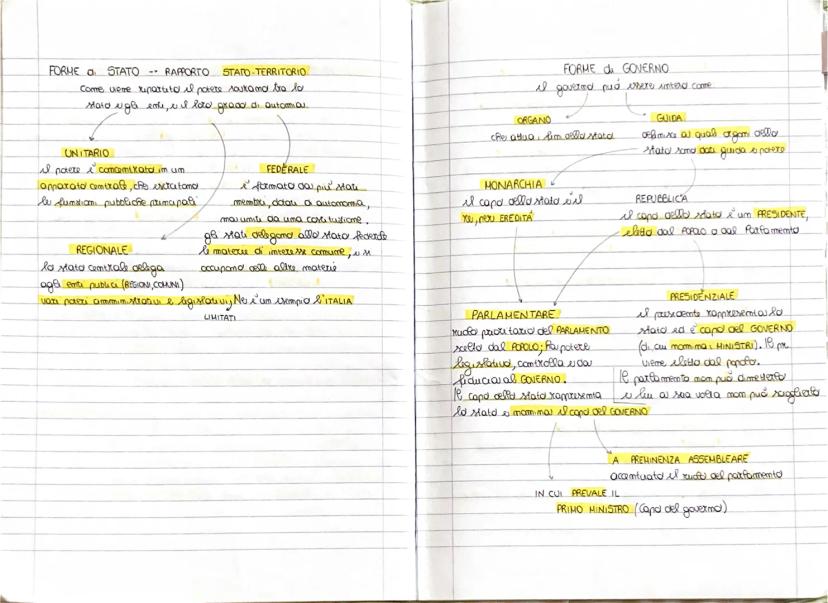 FORME di STATO -- RAPPORTO STATO-TERRITORIO
Come viene ripartito il potere sovrano tra lo
stato e gli enti, e il loro grado di autonomia
UNITARIO
il potere è concentrato in un
apparato centrale, che esercitano
le funzioni pubbliche principali
FEDERALE
è formato da più stati
membri, dotati di autonomia,
ma uniti da una costituzione.
gli stati delegano allo stato federale
le materie di interesse comune, e si
occupano delle altre materie
REGIONALE
lo stato centrale delega
agli enti pubblici (REGIONI, COMUNI)
vari poteri amministrativi e legislativi, Ne è un esempio l'ITALIA
LIMITATI
FORME di GOVERNO
il governo può essere inteso come
ORGANO
che attua i fini dello stato
GUIDA
definisce a quali organi dello
stato sono dati guida e potere
MONARCHIA
il capo dello stato è il
re, per EREDITÀ
REPUBBLICA
il capo dello stato è un PRESIDENTE,
eletto dal POPOLO o dal Parlamento
PARLAMENTARE
ruolo prioritario del PARLAMENTO
scelto dal POPOLO; ha potere
legislativo, controlla e da
fiducia al GOVERNO.
Il capo dello stato rappresenta
lo stato e nomina il capo del GOVERNO
PRESIDENZIALE
il presidente rappresenta lo
stato ed è capo del GOVERNO
(di cui nomina i MINISTRI). Il pr.
viene eletto dal popolo.
Il parlamento non può dimetterlo
e lui a sua volta non può scioglierlo
A PREMINENZA ASSEMBLEARE
accentuato il ruolo del parlamento
IN CUI PREVALE IL
PRIMO MINISTRO (capo del governo)